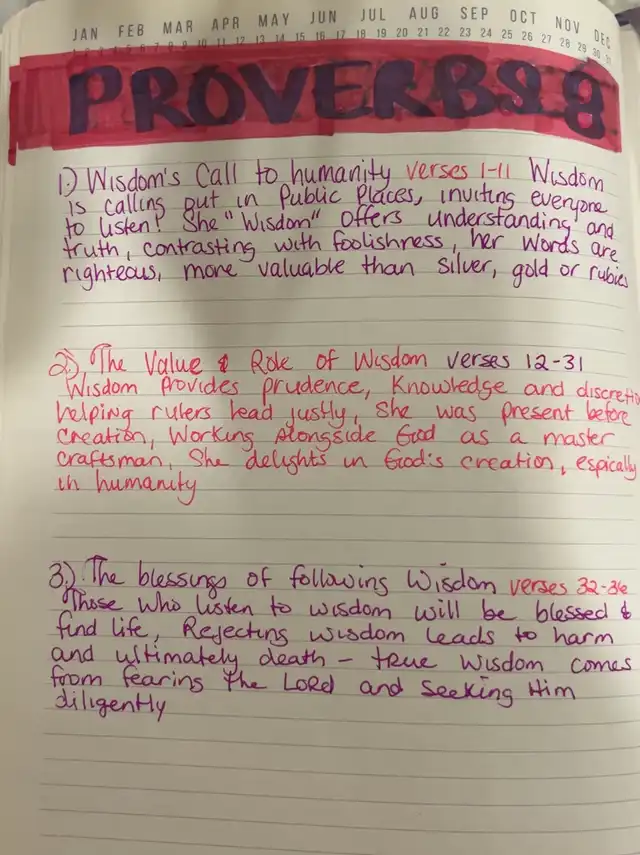 JAN FEB MAR APR MAY JUN JUL AUG SEP OCT NOV DEC
PROVERBS 8
1.) Wisdom's Call to humanity verses 1-11 Wisdom
is calling out in Public Places, inviting everyone
to listen! She "Wisdom" Offers understanding and
truth, contrasting with foolishness, her words are
righteous, more valuable than silver, gold or rubies
2.) The Value & Role of Wisdom verses 12-31
Wisdom Provides prudence, Knowledge and discretio
helping rulers lead justly, She was present before
Creation, Working Alongside God as a master
craftsman, She delights in God's creation, espically
in humanity
3.) The blessings of following Wisdom verses 32-36
Those Who listen to wisdom will be blessed &
find life, Rejecting wisdom leads to harm
and ultimately death - true wisdom comes
from fearing The Lord and seeking Him
diligently